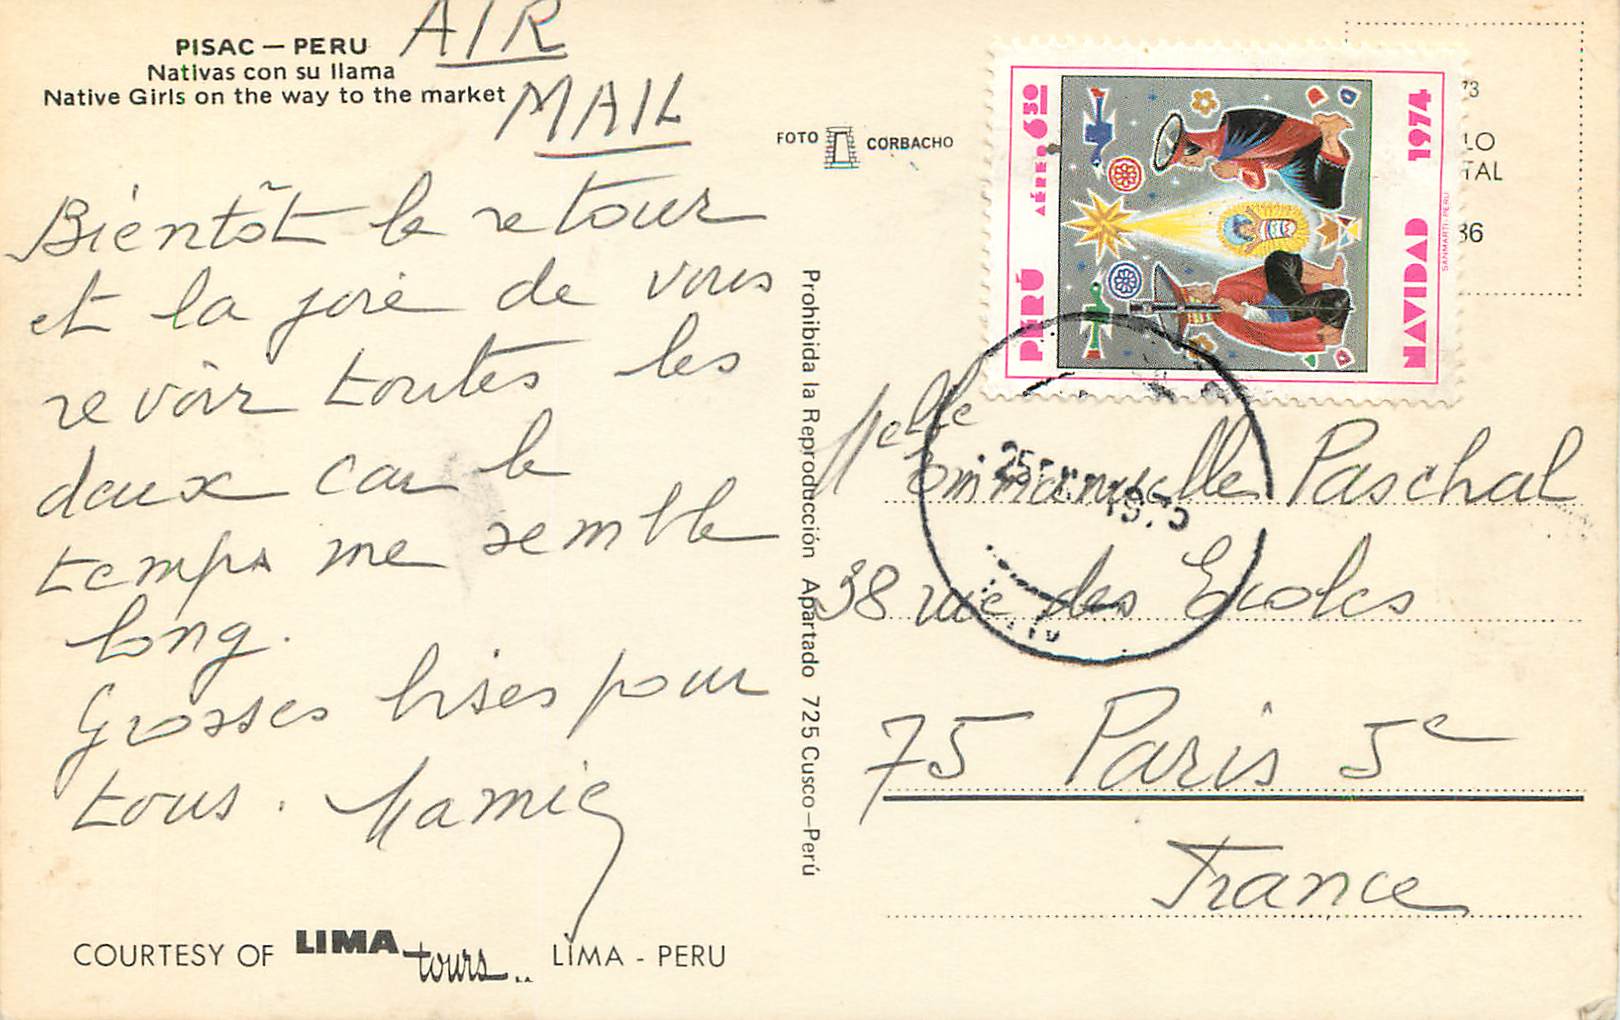 PISAC — PERU
Nativas con su llama
Native Girls on the way to the market
AIR
MAIL
FOTO CORBACHO
Bientôt le retour
et la joie de vous
revoir toutes les
deux car le
temps me semble
long.
Grosses bises pour
tous. Mamie
COURTESY OF LIMA tours S.A. LIMA - PERU
Prohibida la Reproducción Apartado 725 Cusco—Perú
PERÚ AÉREO 6.50
NAVIDAD 1974
SANMARTI-PERU
73
LO
TAL
36
25
Melle
Emmanuelle Paschal
38 rue des Ecoles
75 Paris 5e
France